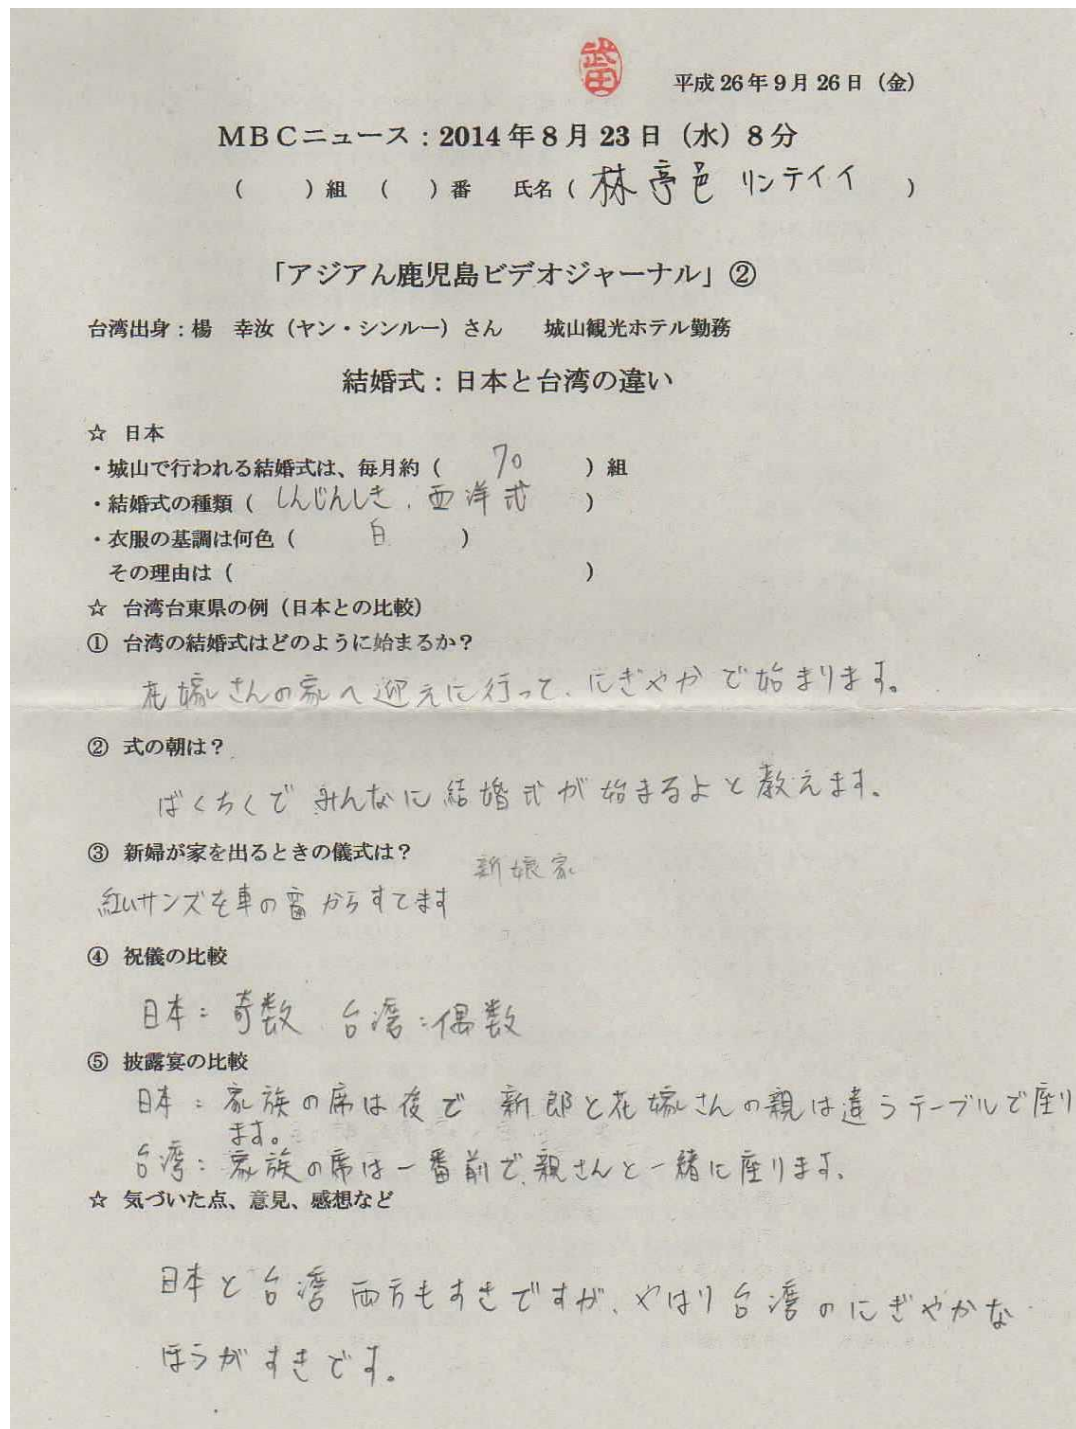 武田
平成26年9月26日（金）
ＭＢＣニュース：2014年8月23日（水）8分
（　　）組　（　　）番　氏名（ 林亭邑 リンテイイ ）
「アジアん鹿児島ビデオジャーナル」②
台湾出身：楊　幸汝（ヤン・シンルー）さん　城山観光ホテル勤務
結婚式：日本と台湾の違い
☆　日本
・城山で行われる結婚式は、毎月約（　70　）組
・結婚式の種類（ しんじんしき、西洋式 ）
・衣服の基調は何色（　白　）
その理由は（　　）
☆　台湾台東県の例（日本との比較）
①　台湾の結婚式はどのように始まるか？
花嫁さんの家へ迎えに行って、にぎやかで始まります。
②　式の朝は？
ばくちくでみんなに結婚式が始まるよと教えます。
③　新婦が家を出るときの儀式は？
新娘家
紅いサンズを車の窗からすてます
④　祝儀の比較
日本：奇数　台湾：偶数
⑤　披露宴の比較
日本：家族の席は後で 新郎と花嫁さんの親は違うテーブルで座り
ます。
台湾：家族の席は一番前で、親さんと一緒に座ります。
☆　気づいた点、意見、感想など
日本と台湾両方もすきですが、やはり台湾のにぎやかな
ほうがすきです。